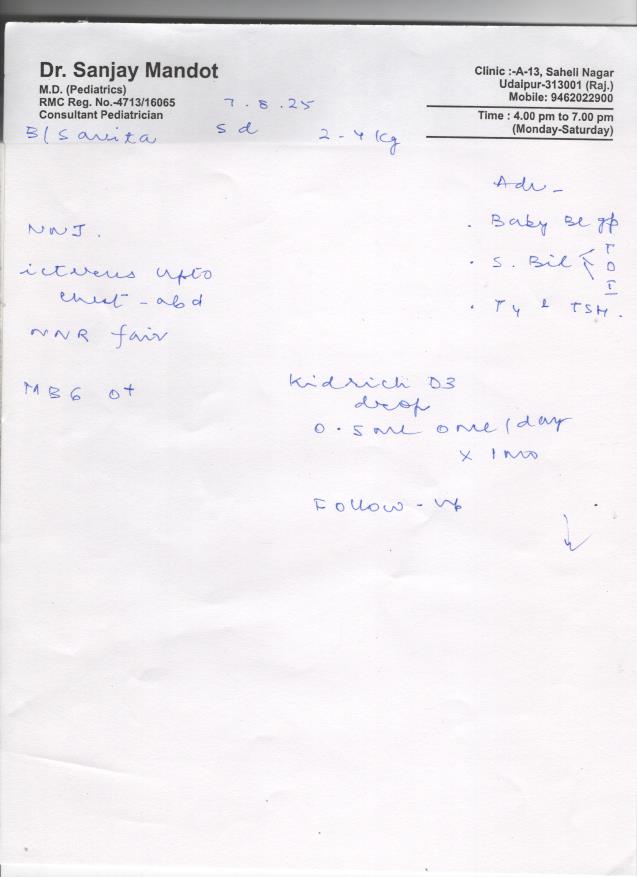 Dr. Sanjay Mandot
M.D. (Pediatrics)
RMC Reg. No.-4713/16065
Consultant Pediatrician
Clinic :-A-13, Saheli Nagar
Udaipur-313001 (Raj.)
Mobile: 9462022900
Time : 4.00 pm to 7.00 pm
(Monday-Saturday)
7.8.25
B/Savita 5d 2-4 kg
Adv-
NNJ.
icterus upto
chest-abd
NNR fair
MBG O+
. Baby Bl gp
. S. Bil T
D
I
. T4 & TSH.
Kidrich D3
drop
0.5ml one/day
x 1mo
Follow-up